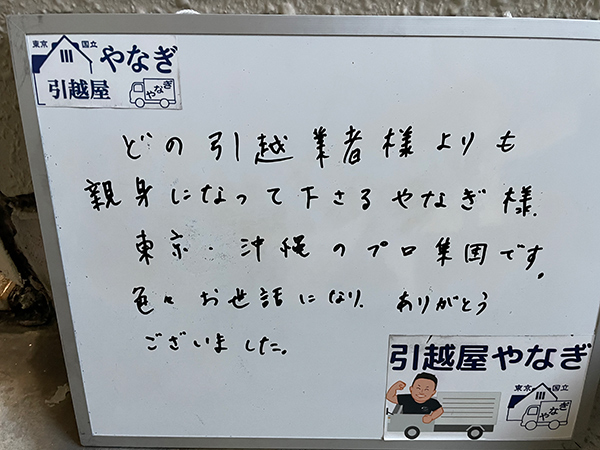 東京 国立
やなぎ
引越屋
やなぎ
どの引越業者様よりも
親身になって下さるやなぎ様。
東京・沖縄のプロ集団です。
色々お世話になり、ありがとう
ございました。
引越屋やなぎ
東京 国立
やなぎ